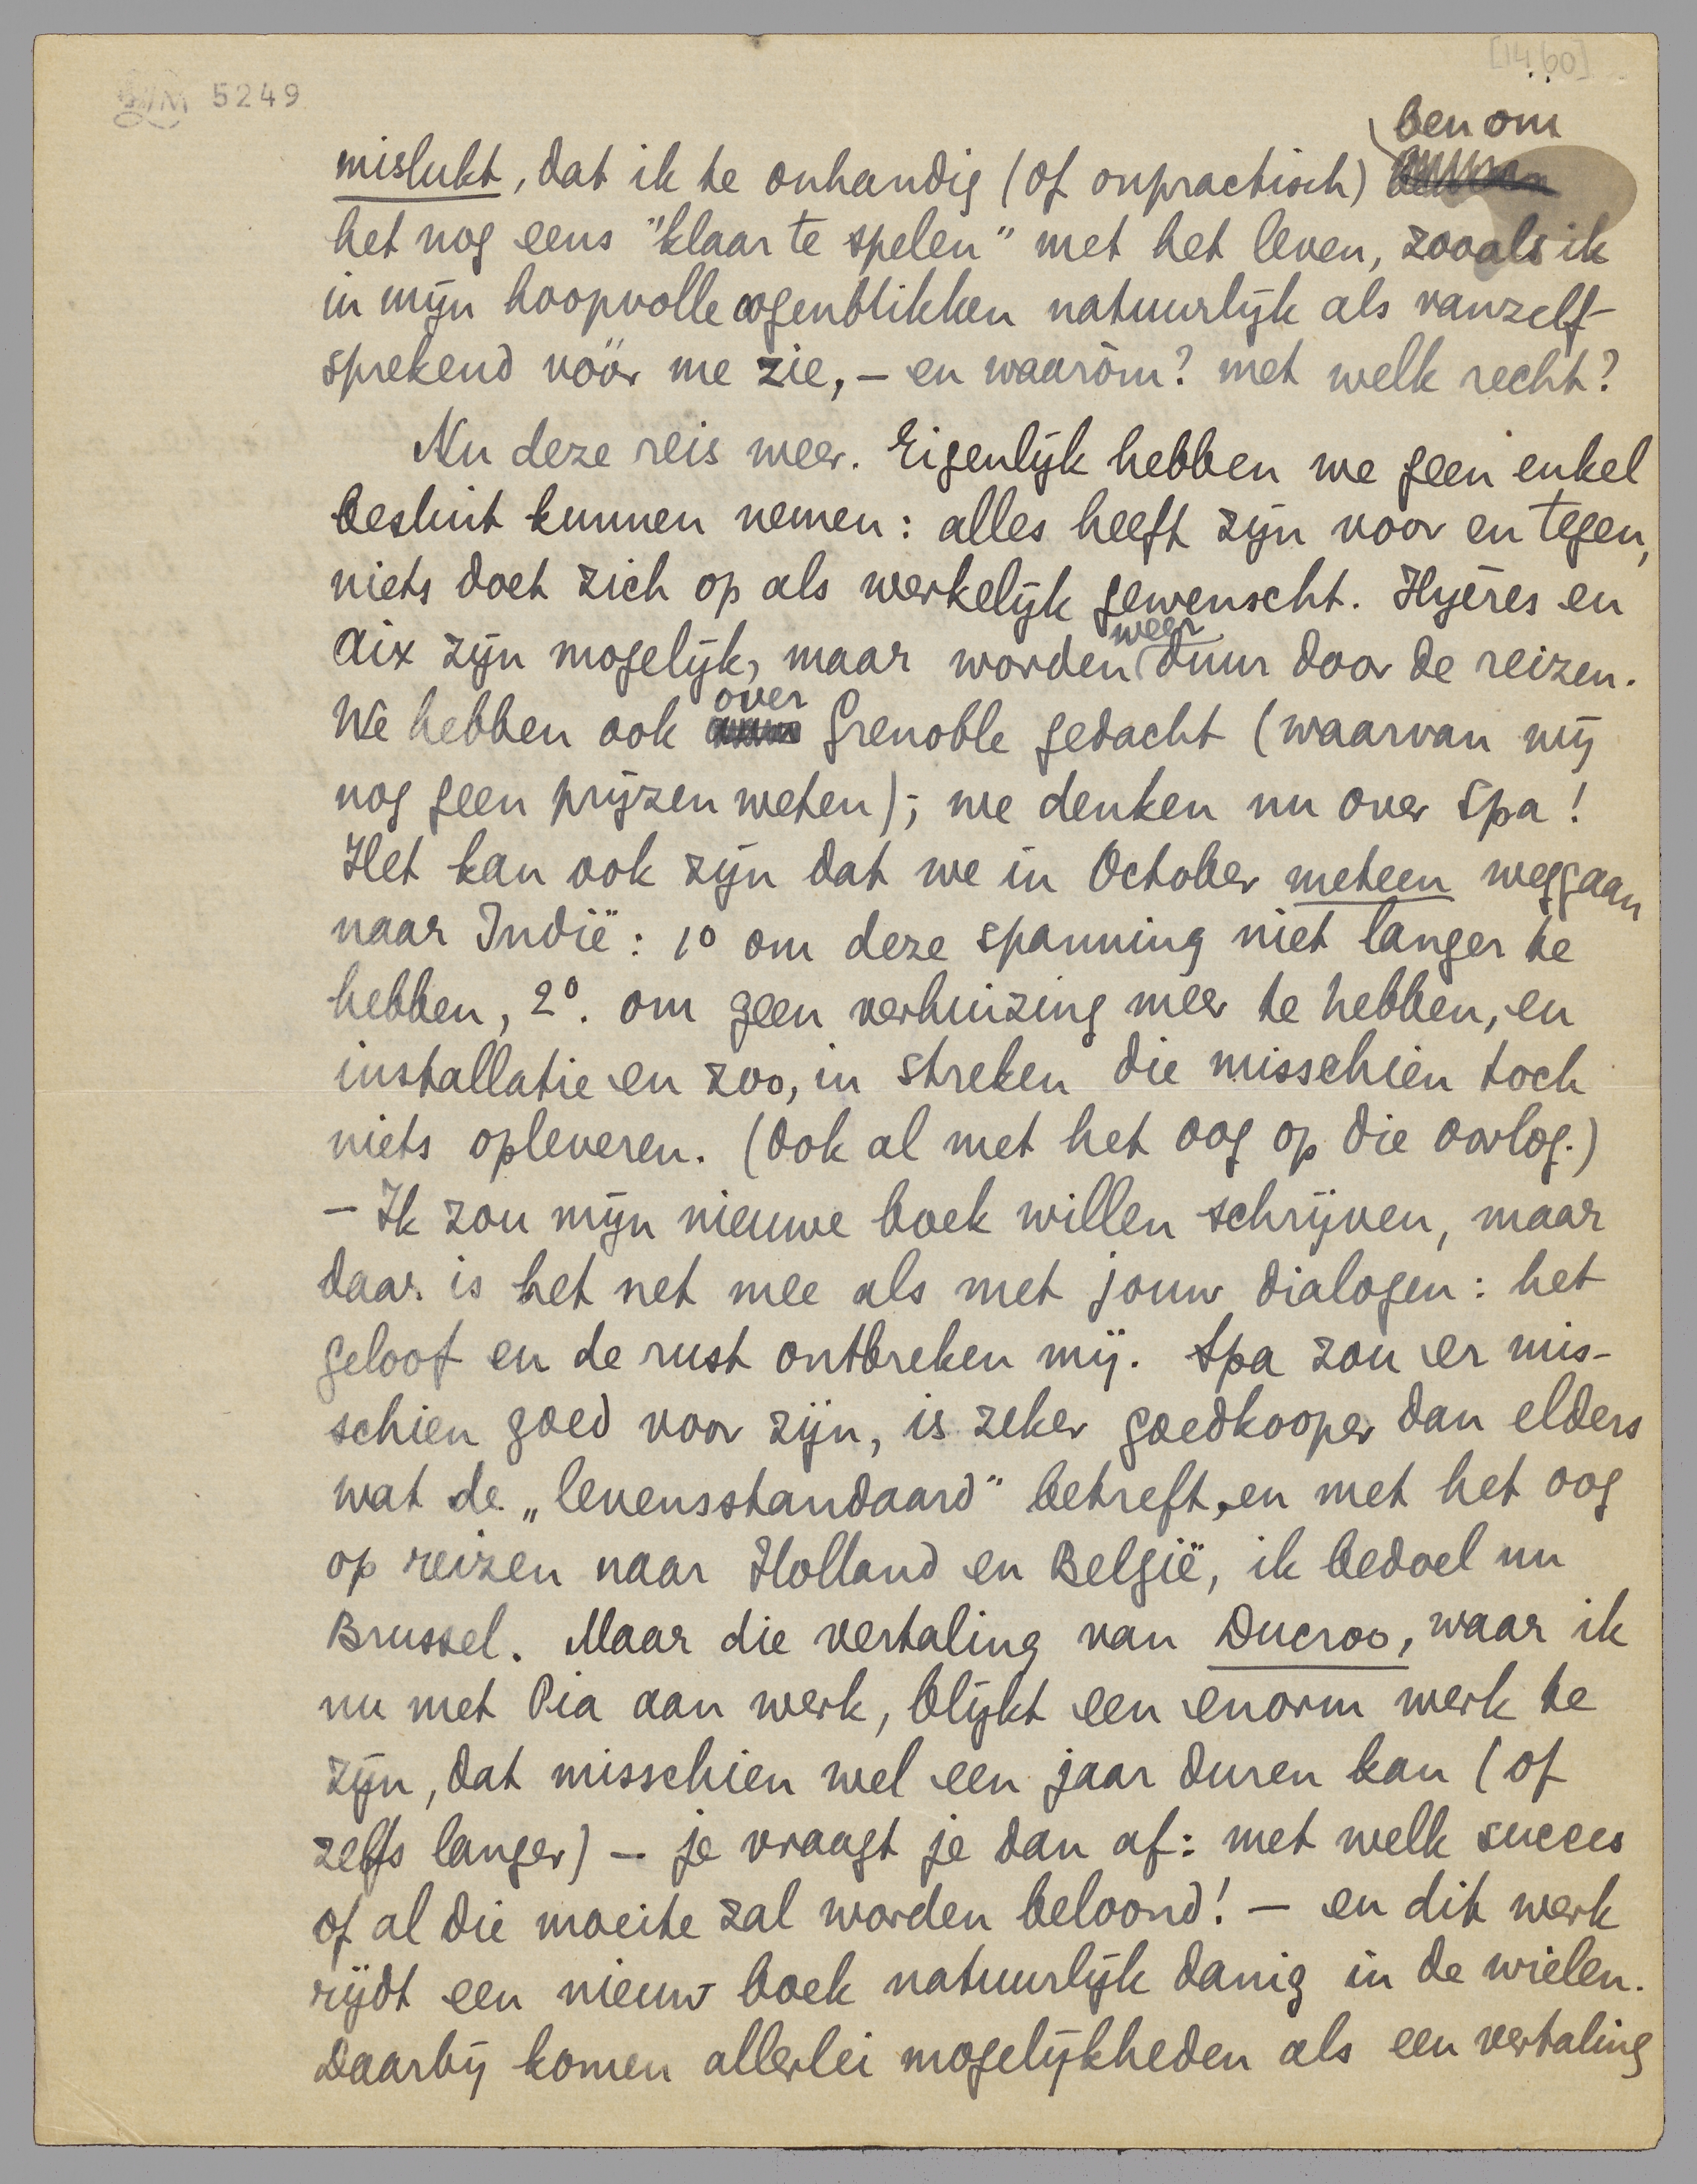 5249
[1460]
ben om
mislukt, dat ik te onhandig (of onpractisch)
het nog eens "klaar te spelen" met het leven, zooals ik
in mijn hoopvolle oogenblikken natuurlijk als vanzelf-
sprekend vóór me zie, – en waaròm? met welk recht?
Nu deze reis weer. Eigenlijk hebben we geen enkel
besluit kunnen nemen: alles heeft zijn voor en tegen,
niets doet zich op als werkelijk gewenscht. Hyères en
weer
Aix zijn mogelijk, maar worden duur door de reizen.
over
We hebben ook Grenoble gedacht (waarvan wij
nog geen prijzen weten); we denken nu over Spa!
Het kan ook zijn dat we in October meteen weggaan
naar Indië: 1º om deze spanning niet langer te
hebben, 2º. om geen verhuizing meer te hebben, en
installatie en zoo, in streken die misschien toch
niets opleveren. (Ook al met het oog op die oorlog.)
– Ik zou mijn nieuwe boek willen schrijven, maar
daar is het net mee als met jouw dialogen: het
geloof en de rust ontbreken mij. Spa zou er mis-
schien goed voor zijn, is zeker goedkooper dan elders
wat de „levensstandaard" betreft, en met het oog
op reizen naar Holland en België, ik bedoel nu
Brussel. Maar die vertaling van Ducroo, waar ik
nu met Pia aan werk, blijkt een enorm werk te
zijn, dat misschien wel een jaar duren kan (of
zelfs langer) – je vraagt je dan af: met welk succes
of al die moeite zal worden beloond! – en dit werk
rijdt een nieuw boek natuurlijk danig in de wielen.
Daarbij komen allerlei mogelijkheden als een vertaling